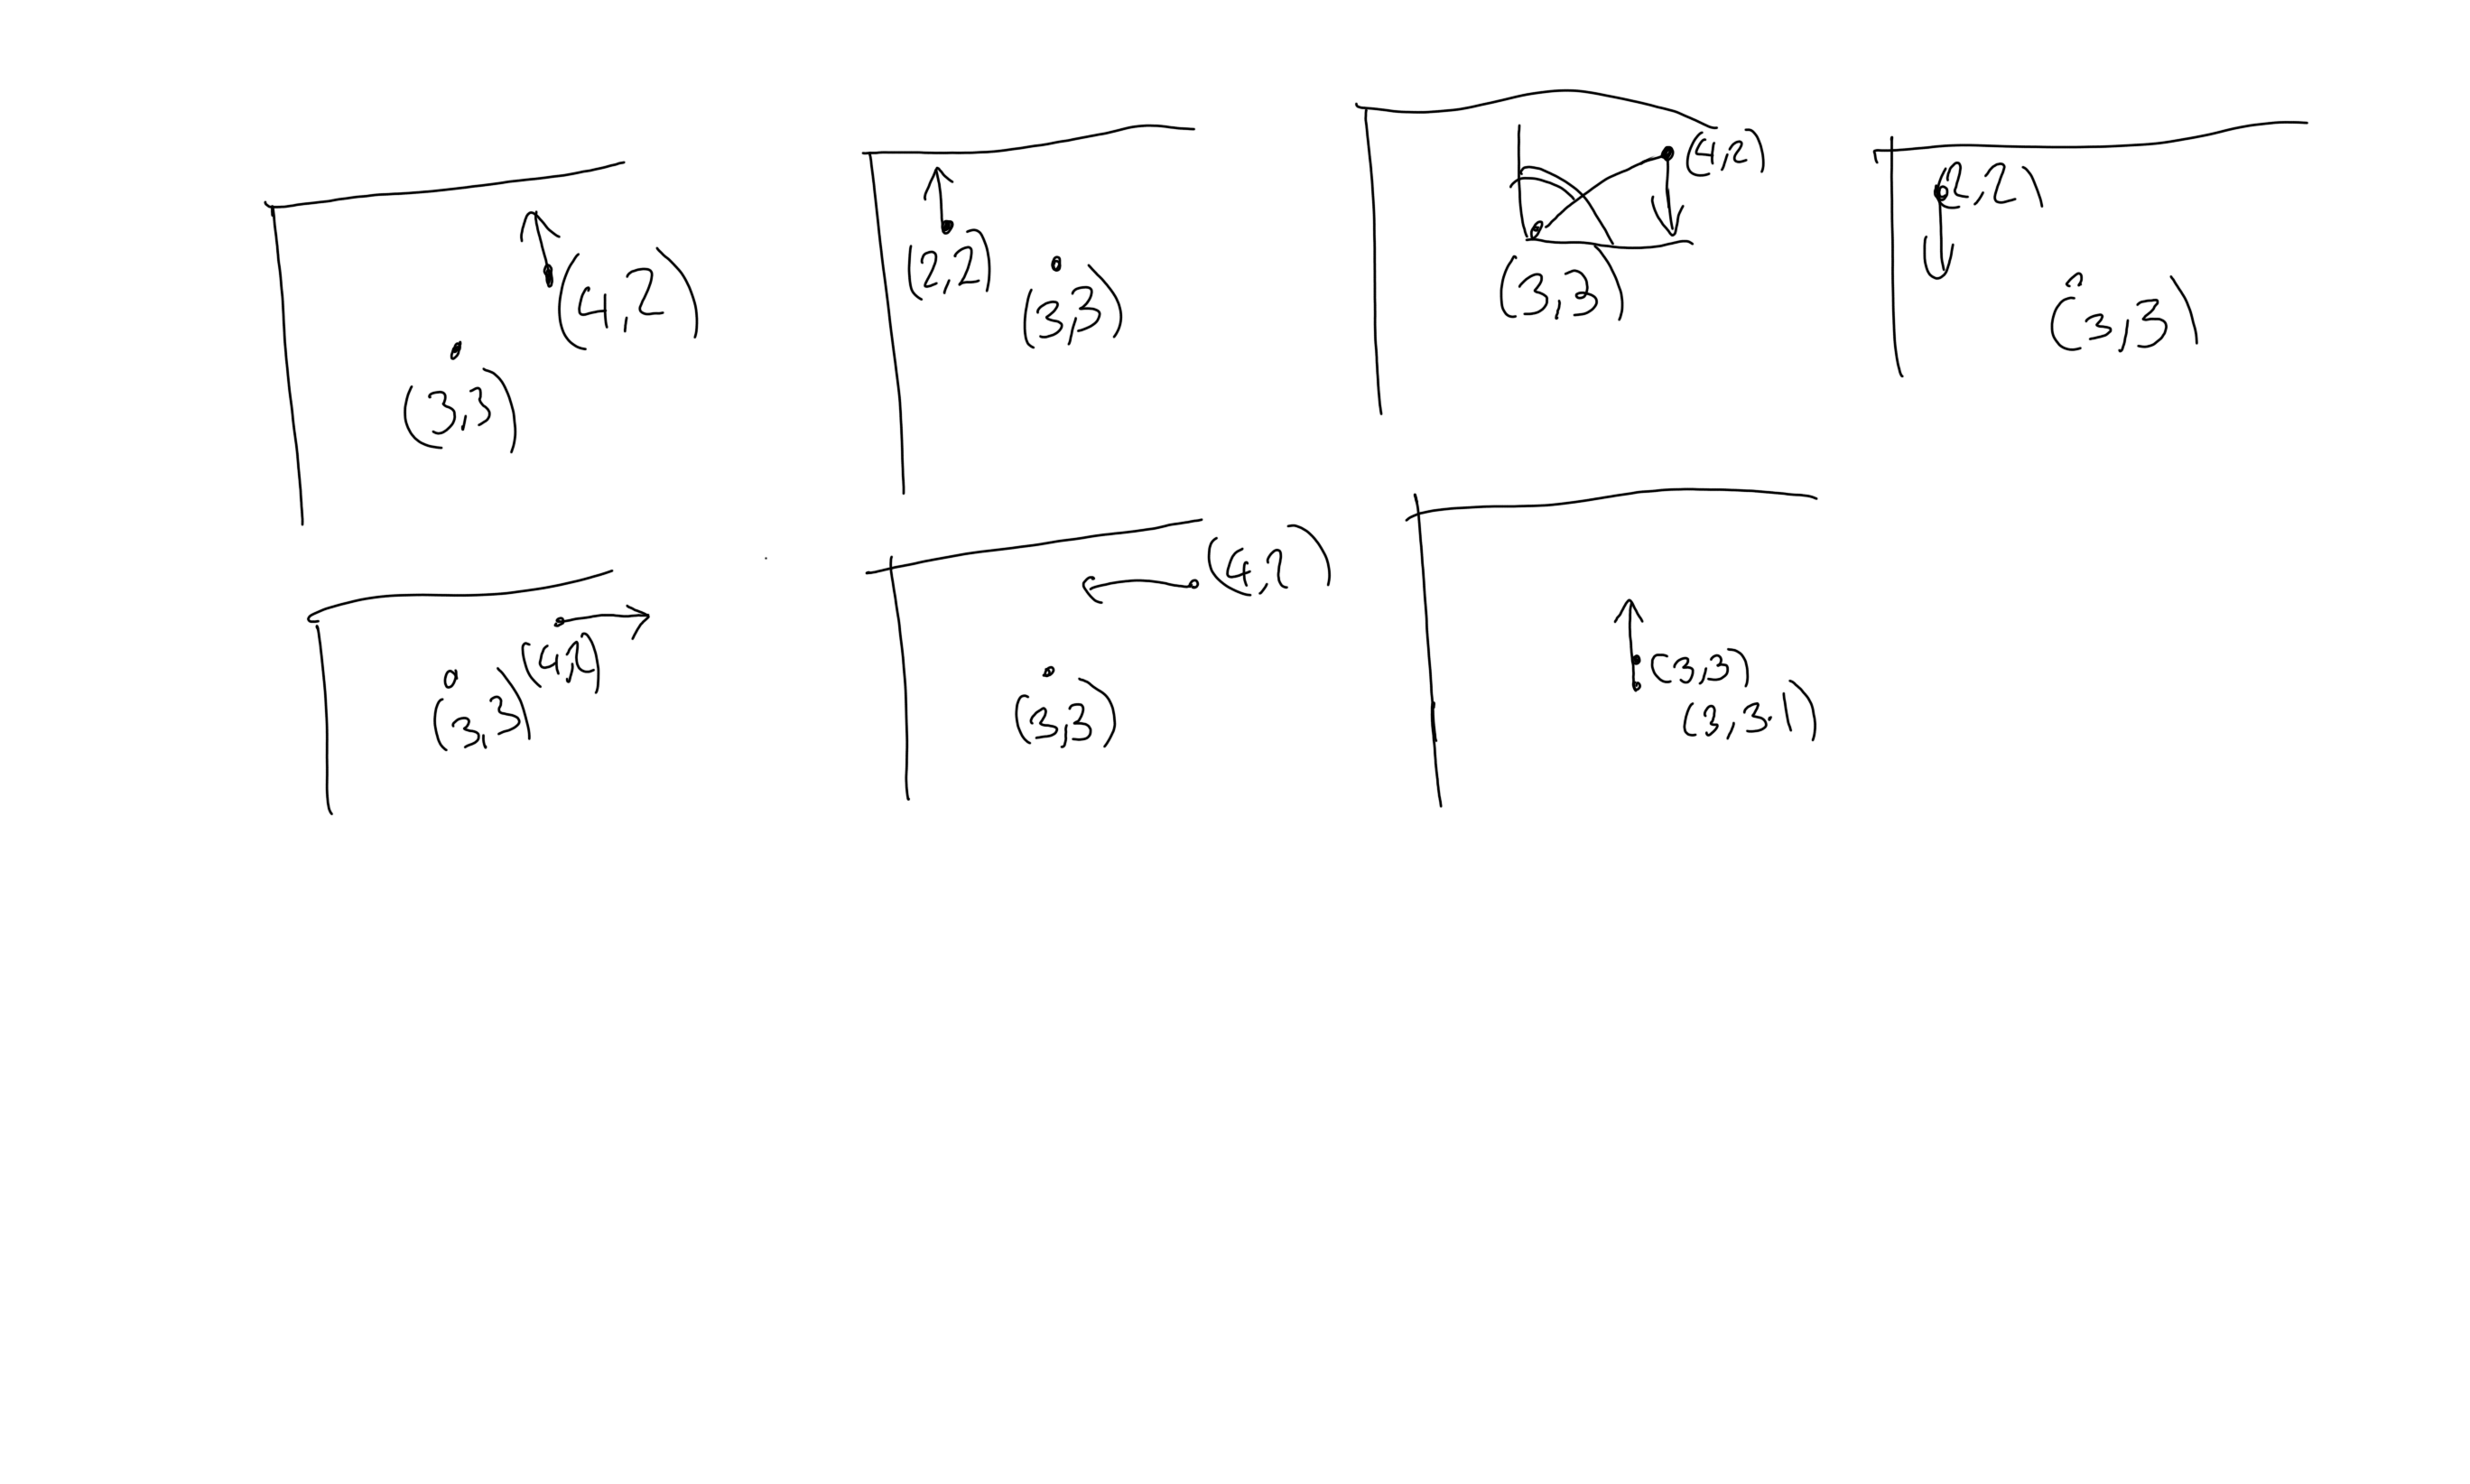 (4,2)
(3,3)
(2,2)
(3,3)
(4,2)
(3,3)
(2,2)
(3,3)
(4,2)
(3,3)
(4,2)
(3,3)
(3,3)
(3,3.1)